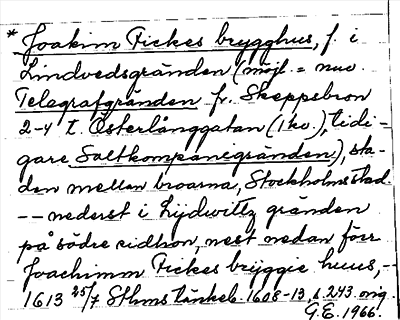 * Joakim Fickes brygghus, f. i
Lindvedsgränden (möjl. = nuv.
Telegrafgränden fr. Skeppsbron
2-4 t. Österlånggatan (1 kv.), tidi-
gare Saltkompanigränden), sta-
den mellan broarna, Stockholms stad.
-- nederst i Lijdwittz gränden
på södre sidhon, nest nedan förr
Joachimm Fickes bryggie huus, --
1613 25/7 Sthms tänkeb. 1608-13, s. 243. orig.
G.E. 1966.